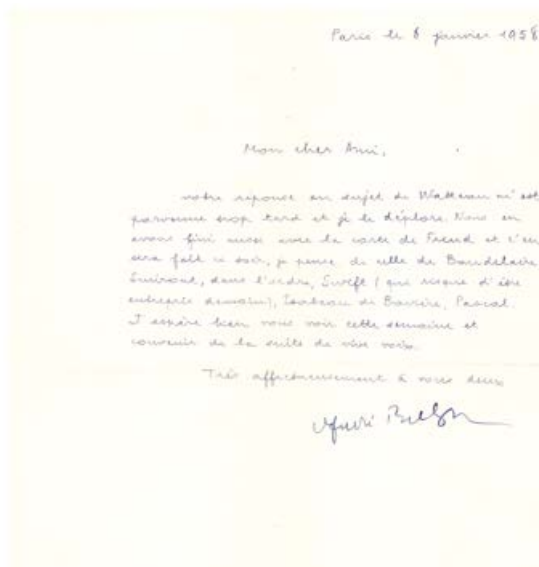 Paris le 8 janvier 1958
Mon cher Ami,
votre réponse au sujet de Watteau m'est
parvenue trop tard et je le déplore. Nous en
avons fini aussi avec la carte de Freud et c'en
sera fait ce soir, je pense de celle de Baudelaire
Suivront, dans l'ordre, Swift (qui risque d'être
entreprise demain), Isabeau de Bavière, Pascal.
J'espère bien vous voir cette semaine et
convenir de la suite de vive voix.
Très affectueusement à vous deux